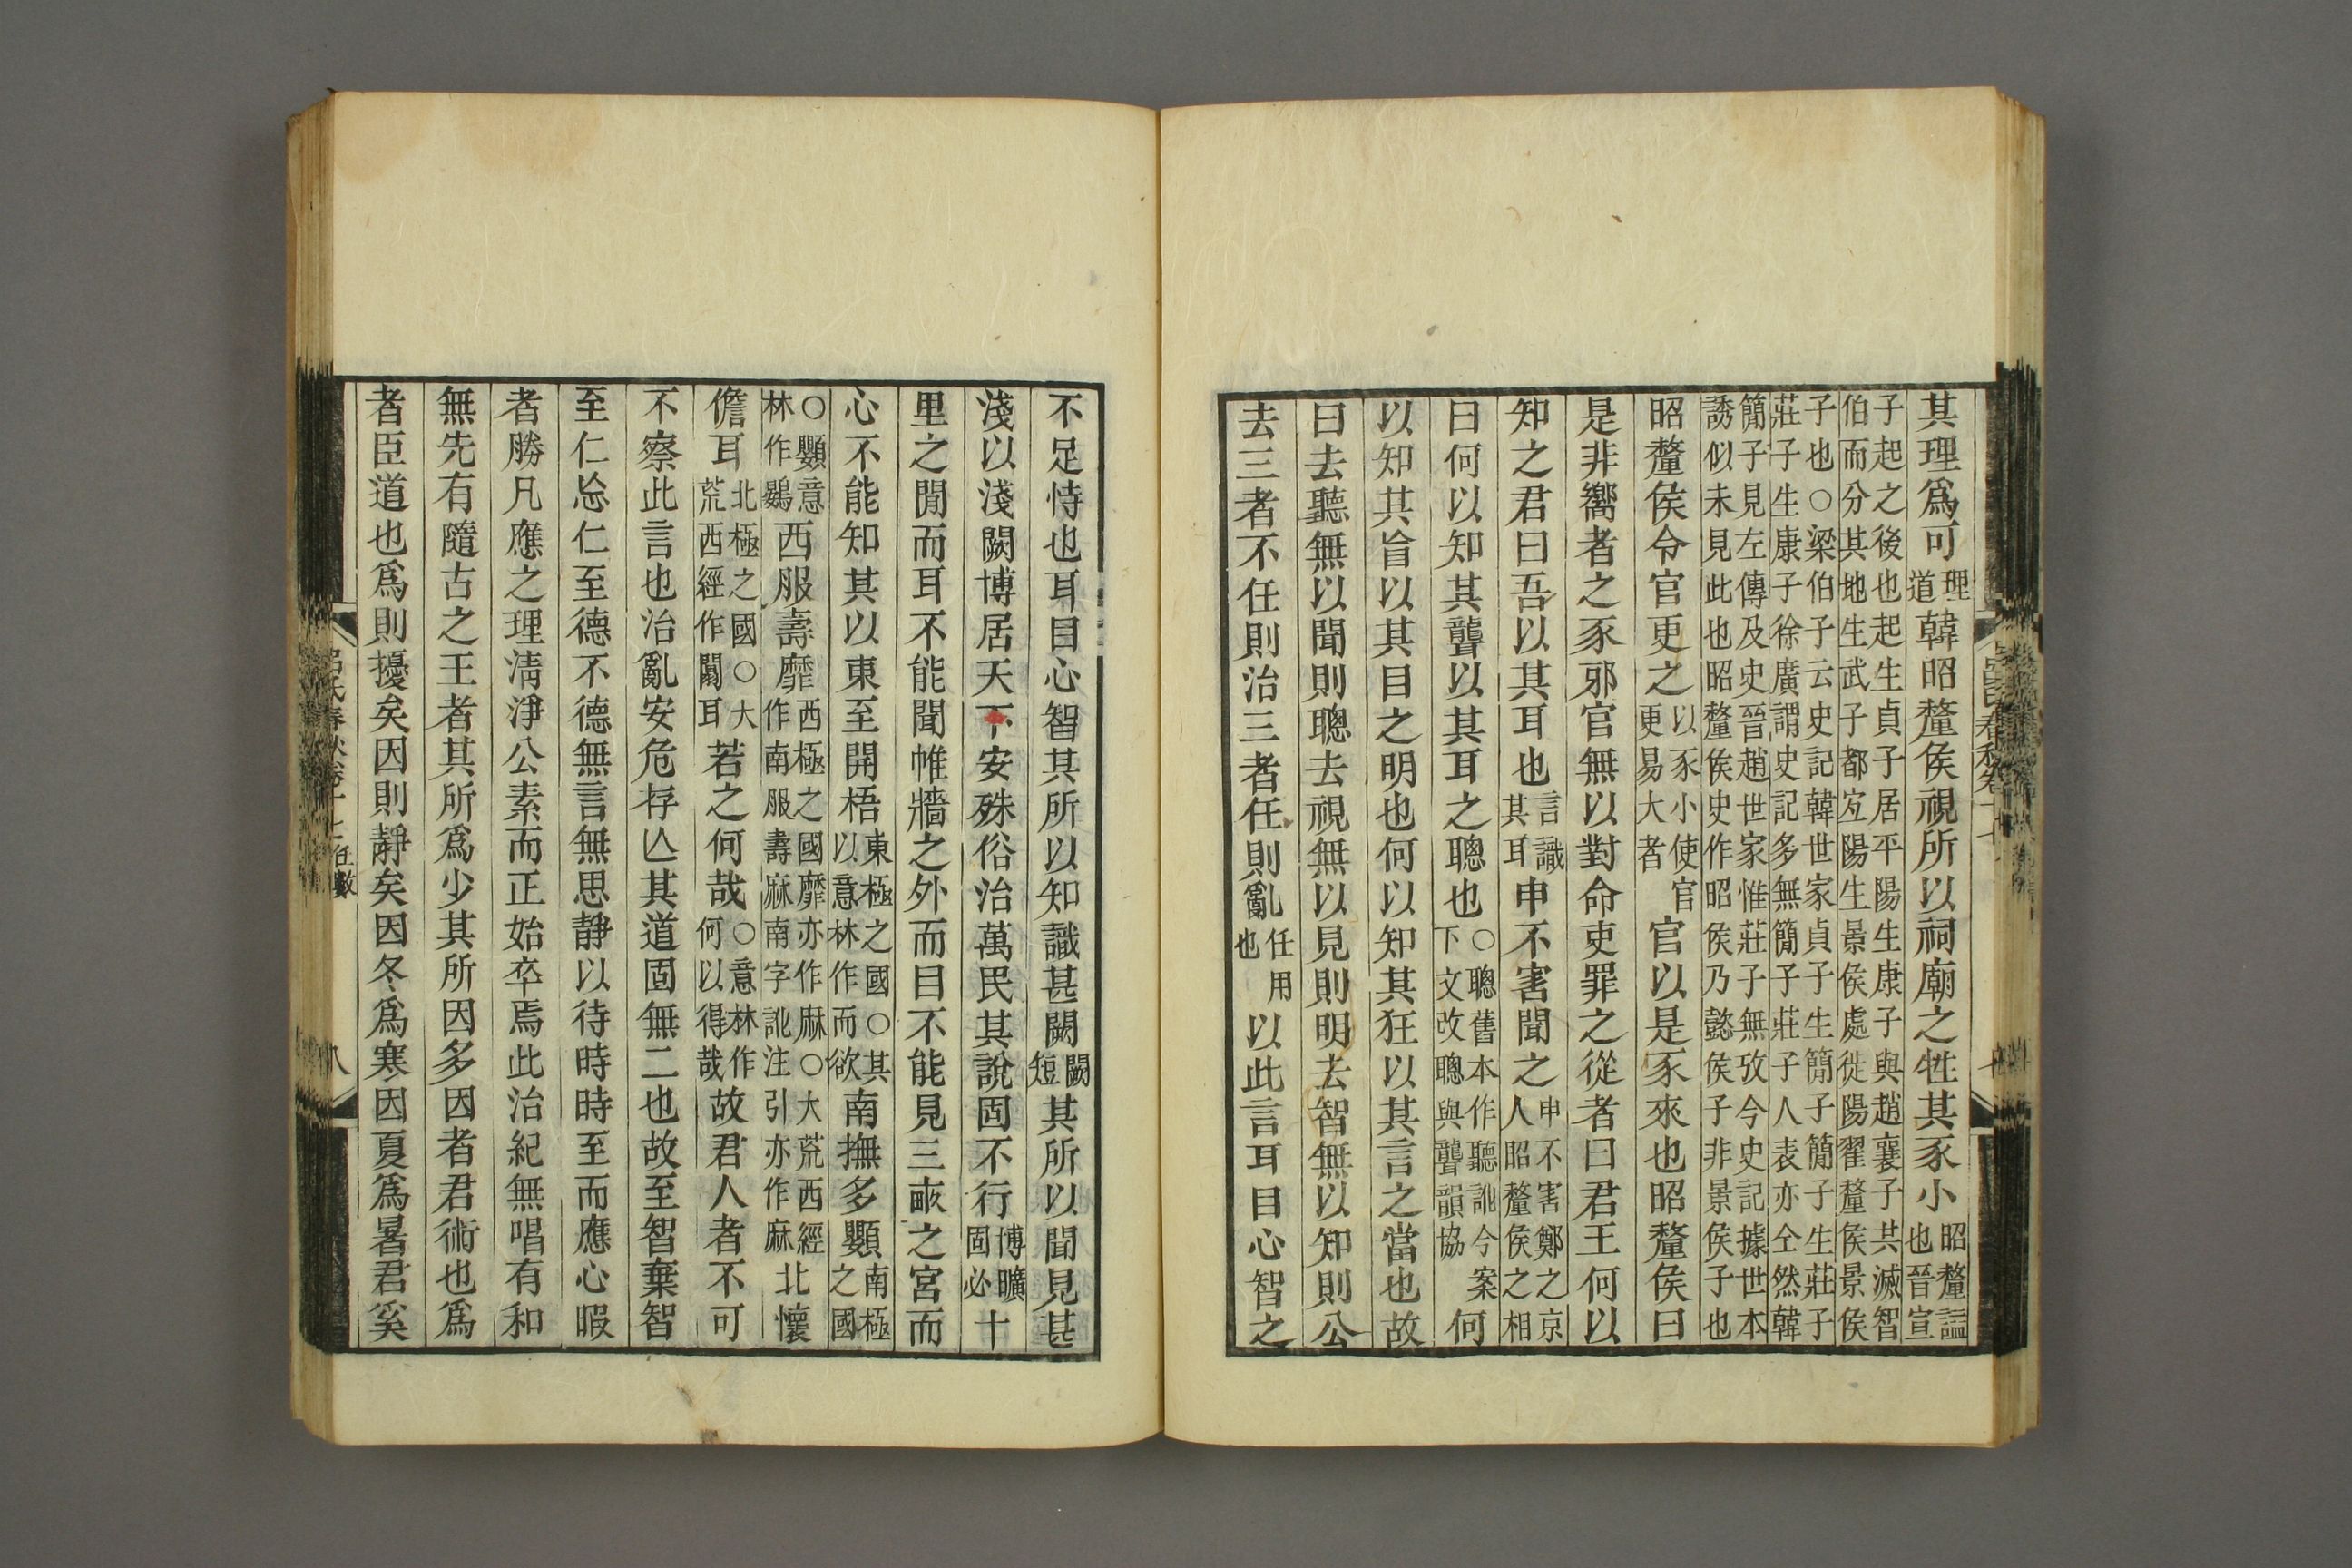 其理爲可理道韓昭釐侯視所以祠廟之牲其豕小昭釐諡也晉宣
子起之後也起生貞子居平陽生康子與趙襄子共滅智
伯而分其地生武子都宐陽生景侯處徙陽翟釐侯景侯
子也○梁伯子云史記韓世家貞子生簡子簡子生莊子
莊子生康子徐廣謂史記多無簡子莊子人表亦仝然韓
簡子見左傳及史晉趙世家惟莊子無攷今史記據世本
誘似未見此也昭釐侯史作昭侯乃懿侯子非景侯子也
昭釐侯令官更之以豕小使官更易大者官以是豕來也昭釐侯曰
是非嚮者之豕邪官無以對命吏罪之從者曰君王何以
知之君曰吾以其耳也言識其耳申不害聞之申不害鄭之京人昭釐侯之相
曰何以知其聾以其耳之聰也○聰舊本作聽訛今案下文改聰與聾韻協何
以知其盲以其目之明也何以知其狂以其言之當也故
曰去聽無以聞則聰去視無以見則明去智無以知則公
去三者不任則治三者任則亂任用也以此言耳目心智之
不足恃也耳目心智其所以知識甚闕闕短其所以聞見甚
淺以淺闕博居天下安殊俗治萬民其說固不行博曠固必十
里之閒而耳不能聞帷牆之外而目不能見三畝之宮而
心不能知其以東至開梧東極之國○其以意林作而欲南撫多䫫南極之國
○䫫意林作鷃西服壽靡西極之國靡亦作麻○大荒西經作南服壽麻南字訛注引亦作麻北懷
儋耳北極之國○大荒西經作闟耳若之何哉○意林作何以得哉故君人者不可
不察此言也治亂安危存亾其道固無二也故至智棄智
至仁忘仁至德不德無言無思靜以待時時至而應心暇
者勝凡應之理淸淨公素而正始卒焉此治紀無唱有和
無先有隨古之王者其所爲少其所因多因者君術也爲
者臣道也爲則擾矣因則靜矣因冬爲寒因夏爲暑君奚
呂氏春秋卷十七任數
八